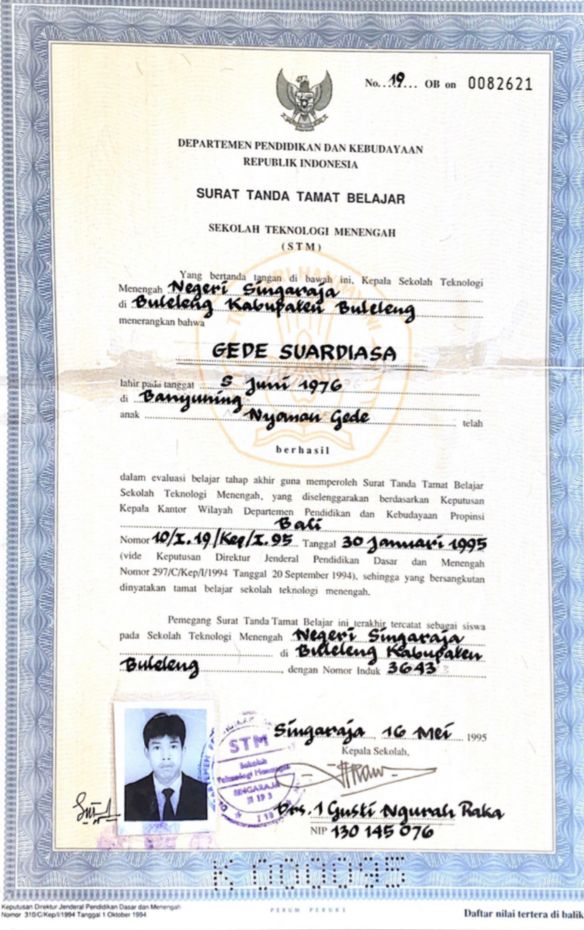 No. 19 OB on 0082621
DEPARTEMEN PENDIDIKAN DAN KEBUDAYAAN
REPUBLIK INDONESIA
SURAT TANDA TAMAT BELAJAR
SEKOLAH TEKNOLOGI MENENGAH
(STM)
Yang bertanda tangan di bawah ini, Kepala Sekolah Teknologi
Menengah Negeri Singaraja
di Buleleng Kabupaten Buleleng
menerangkan bahwa
GEDE SUARDIASA
lahir pada tanggal 5 Juni 1976
di Banyuning
anak Nyoman Gede telah
berhasil
dalam evaluasi belajar tahap akhir guna memperoleh Surat Tanda Tamat Belajar
Sekolah Teknologi Menengah, yang diselenggarakan berdasarkan Keputusan
Kepala Kantor Wilayah Departemen Pendidikan dan Kebudayaan Propinsi
Bali
Nomor 10/I.19/Kep/I.95 Tanggal 30 Januari 1995
(vide Keputusan Direktur Jenderal Pendidikan Dasar dan Menengah
Nomor 297/C/Kep/I/1994 Tanggal 20 September 1994), sehingga yang bersangkutan
dinyatakan tamat belajar sekolah teknologi menengah.
Pemegang Surat Tanda Tamat Belajar ini terakhir tercatat sebagai siswa
pada Sekolah Teknologi Menengah Negeri Singaraja
di Buleleng Kabupaten
Buleleng, dengan Nomor Induk 3643
Singaraja, 16 Mei 1995
Kepala Sekolah,
STM
Sekolah
Teknologi Menengah
SINGARAJA
Drs. I Gusti Ngurah Raka
NIP 130 145 076
K 0000095
Keputusan Direktur Jenderal Pendidikan Dasar dan Menengah
Nomor 310/C/Kep/I/1994 Tanggal 1 Oktober 1994
PERUM PERURI
Daftar nilai tertera di balik